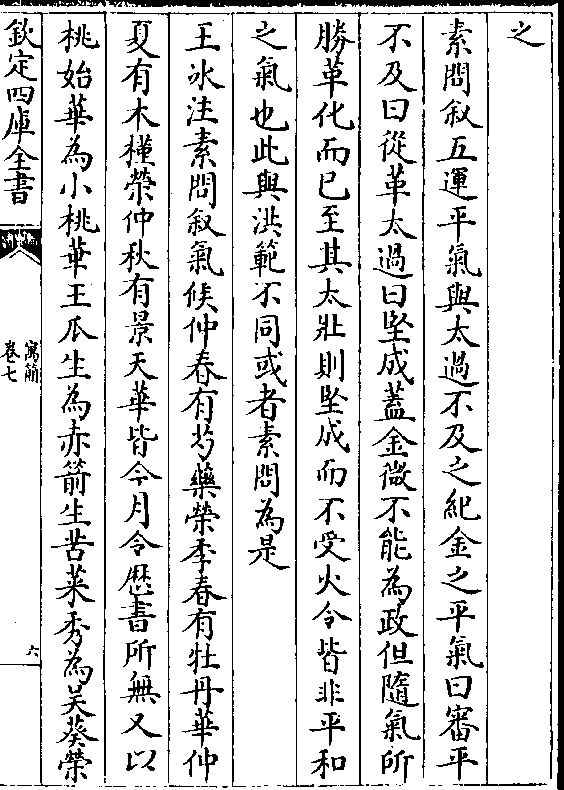 之
素問叙五運平氣與太過不及之紀金之平氣曰審平
不及曰從革太過曰堅成蓋金微不能為政但隨氣所
勝革化而已至其太壯則堅成而不受火令皆非平和
之氣也此與洪範不同或者素問為是
王冰注素問叙氣候仲春有芍藥榮季春有牡丹華仲
夏有木槿榮仲秋有景天華皆今月令歴書所無又以
桃始華為小桃華王瓜生為赤箭生苦菜秀為吴葵榮
欽定四庫全書
寓簡
卷七
六